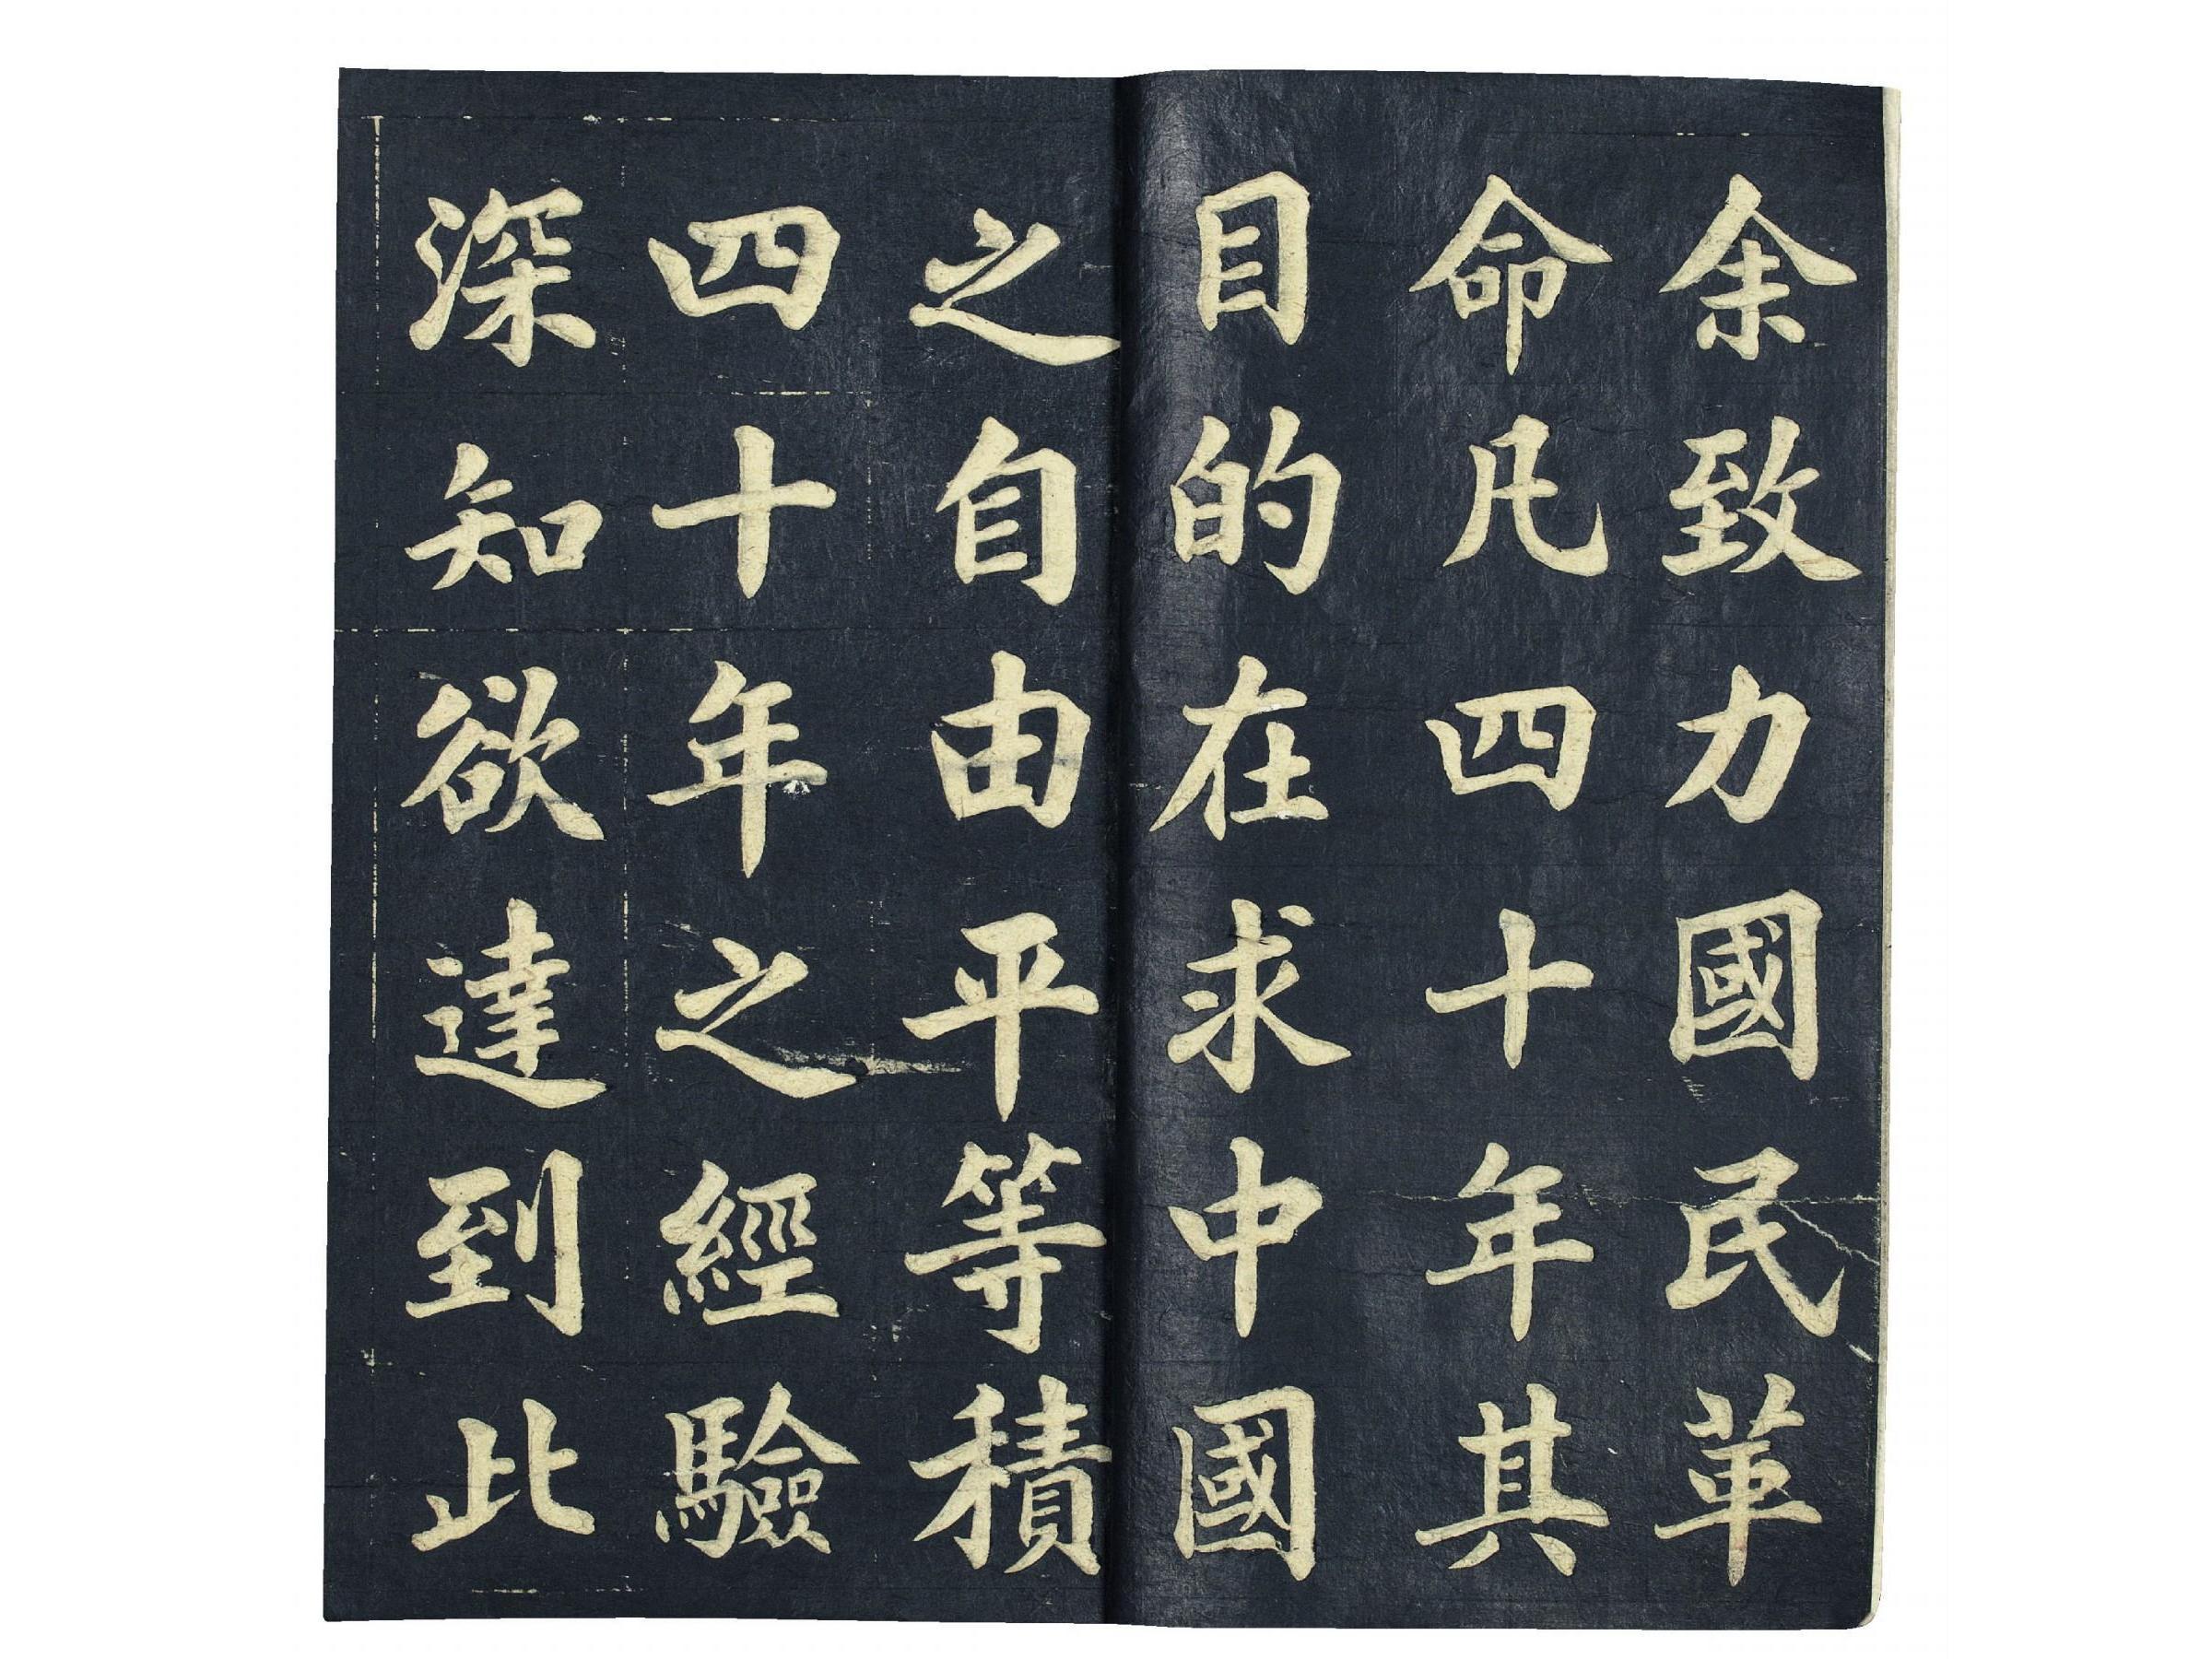 余致力國民革
命凡四十年其
目的在求中國
之自由平等積
四十年之經驗
深知欲達到此